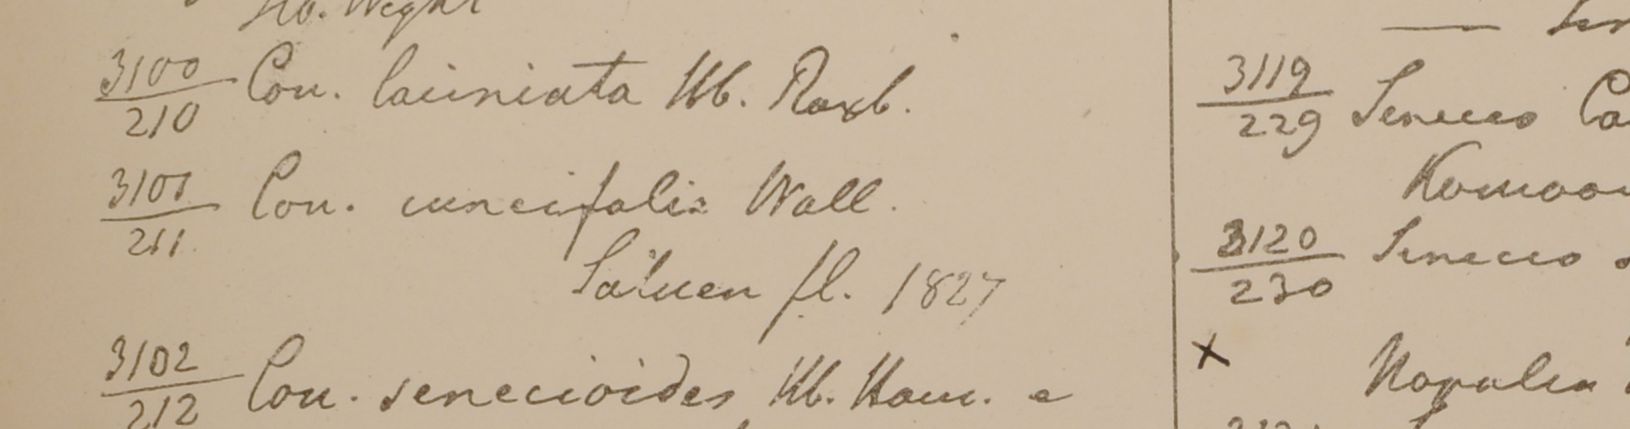 Hb. Wight
3100
210
Con. laciniata Hb. Roxb.
3101
211
Con. cuneifolia Wall.
Saluen fl. 1827
3102
212
Con. senecioides Hb. Ham. e
3119
229
Senecio Ca
3120
230
Senecio
x
Nopalia